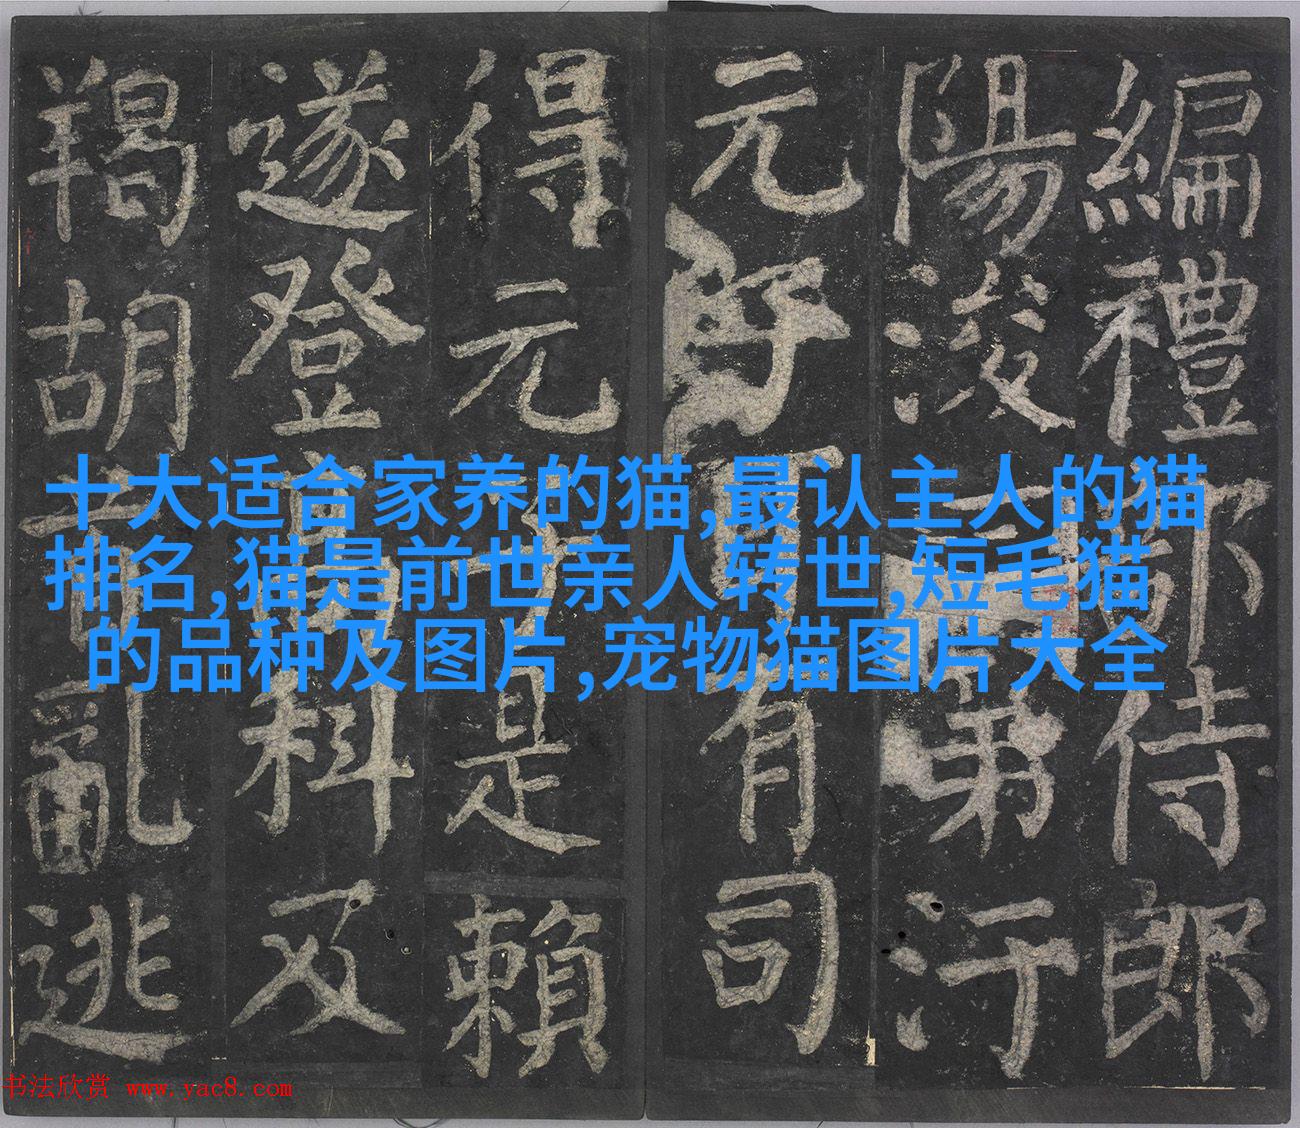 編禮部侍郎
陽浚第汙
元有司
得元子是賴
遂登高科及
羯胡首亂逃
十大适合家养的猫,最认主人的猫
排名,猫是前世亲人转世,短毛猫
的品种及图片,宠物猫图片大全
书法欣赏 www.yac8.com